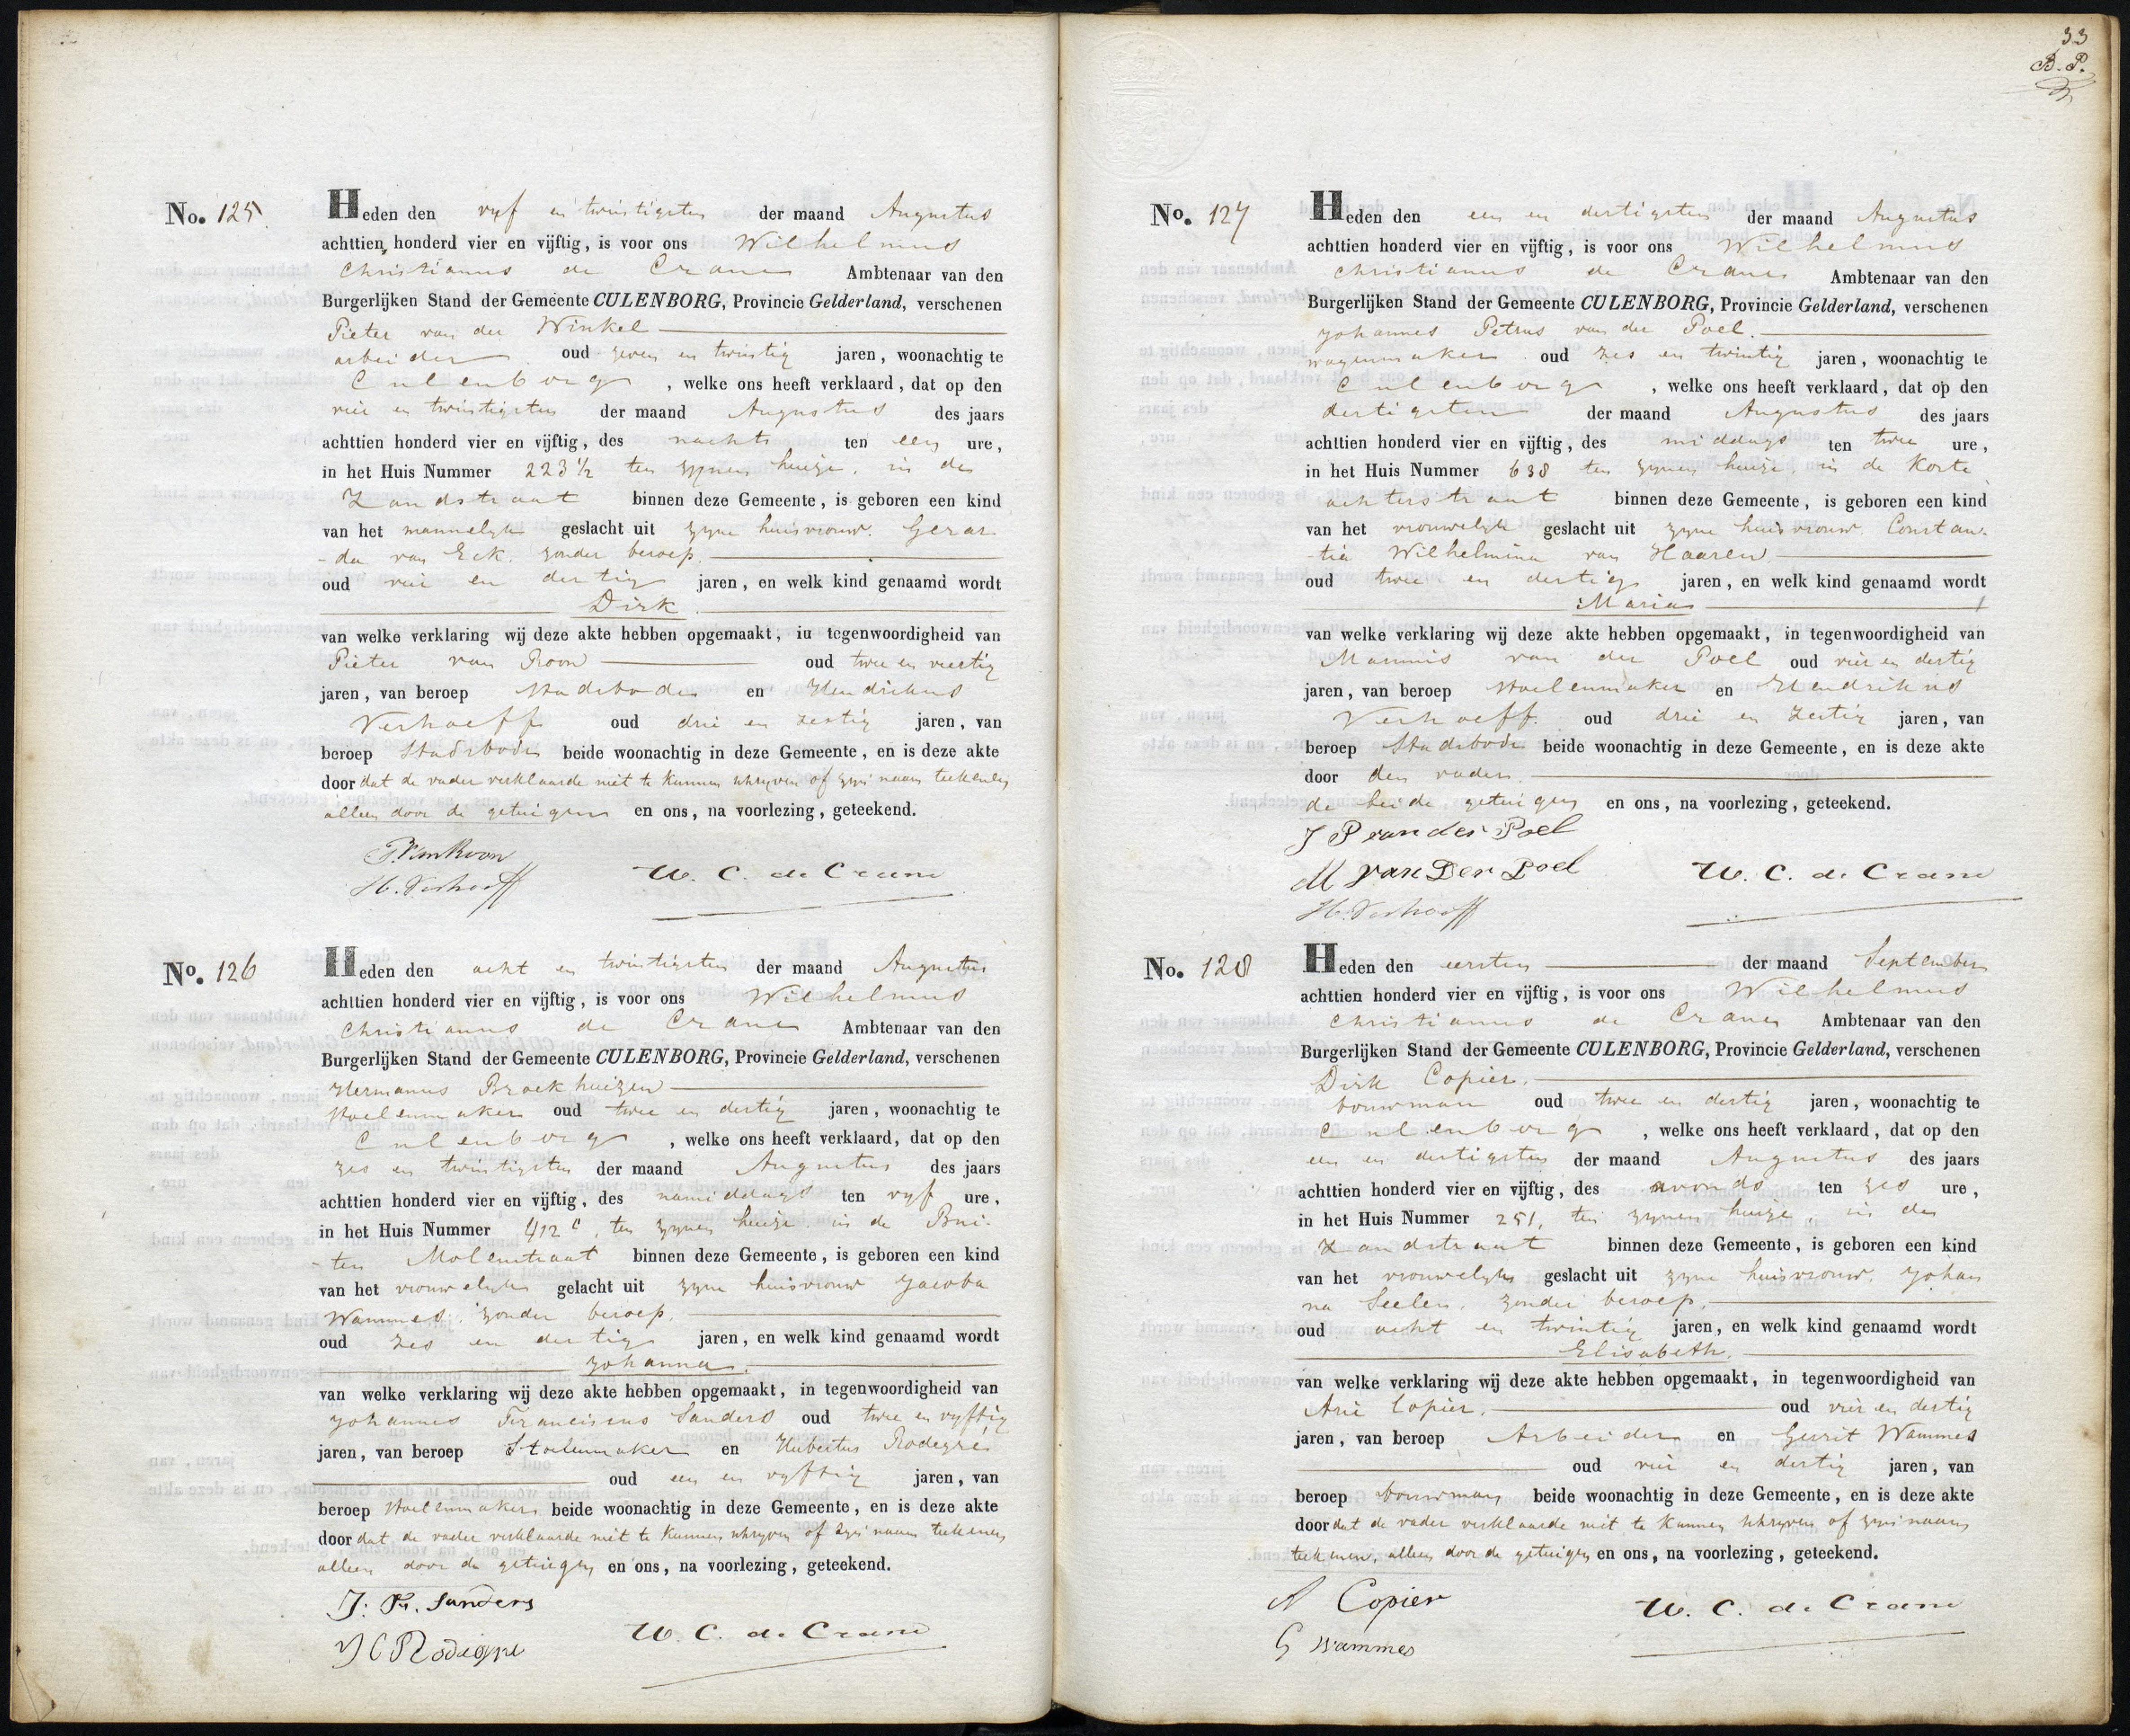 No. 125
Heden den vyf en twintigsten der maand Augustus
achttien honderd vier en vijftig, is voor ons Wilhelmus
Christianus de Crane Ambtenaar van den
Burgerlijken Stand der Gemeente CULENBORG, Provincie Gelderland, verschenen
Pieter van der Winkel
arbeider oud zeven en twintig jaren, woonachtig te
Culenborg, welke ons heeft verklaard, dat op den
vier en twintigsten der maand Augustus des jaars
achttien honderd vier en vijftig, des nachts ten een ure,
in het Huis Nummer 223 1/2 ten zynen huize, in de
Zandstraat binnen deze Gemeente, is geboren een kind
van het mannelyk geslacht uit zyne huisvrouw. Gerar-
-da van Eck, zonder beroep.
oud vier en dertig jaren, en welk kind genaamd wordt
Dirk.
van welke verklaring wij deze akte hebben opgemaakt, in tegenwoordigheid van
Pieter van Roon oud twee en veertig
jaren, van beroep Stadsbode en Hendrikus
Verhoeff oud drie en zestig jaren, van
beroep Stadsbode beide woonachtig in deze Gemeente, en is deze akte
door dat de vader verklaarde niet te kunnen schryven of zyn naam teekenen
alleen door de getuigen en ons, na voorlezing, geteekend.
P. Van Roon
H. Verhoeff W. C. de Crane
No. 126
Heden den acht en twintigsten der maand Augustus
achttien honderd vier en vijftig, is voor ons Wilhelmus
Christianus de Crane Ambtenaar van den
Burgerlijken Stand der Gemeente CULENBORG, Provincie Gelderland, verschenen
Hermanus Broekhuizen
Stoelenmaker oud twee en dertig jaren, woonachtig te
Culenborg, welke ons heeft verklaard, dat op den
zes en twintigsten der maand Augustus des jaars
achttien honderd vier en vijftig, des namiddags ten vyf ure,
in het Huis Nummer 412 c, ten zynen huize in de Bui-
-ten Molenstraat binnen deze Gemeente, is geboren een kind
van het vrouwelyk gelacht uit zyne huisvrouw Jacoba
Wammes, zonder beroep.
oud zes en dertig jaren, en welk kind genaamd wordt
Johanna.
van welke verklaring wij deze akte hebben opgemaakt, in tegenwoordigheid van
Johannes Franciscus Sanders oud twee en vyftig
jaren, van beroep Stoelenmaker en Hubertus Rodegré
oud een en vyftig jaren, van
beroep Stoelenmaker beide woonachtig in deze Gemeente, en is deze akte
door dat de vader verklaarde niet te kunnen schryven of zyn naam teekenen
alleen door de getuigen en ons, na voorlezing, geteekend.
J: Fr. Sanders
W. C. de Crane
33
B. P.
No. 127
Heden den een en dertigsten der maand Augustus
achttien honderd vier en vijftig, is voor ons Wilhelmus
Christianus de Crane Ambtenaar van den
Burgerlijken Stand der Gemeente CULENBORG, Provincie Gelderland, verschenen
Johannes Petrus van der Poel.
wagenmaker oud zes en twintig jaren, woonachtig te
Culenborg, welke ons heeft verklaard, dat op den
dertigsten der maand Augustus des jaars
achttien honderd vier en vijftig, des middags ten twee ure,
in het Huis Nummer 638 ten zynen huize, in de Korte
achterstraat binnen deze Gemeente, is geboren een kind
van het vrouwelyk geslacht uit zyne huisvrouw Constan-
-tia Wilhelmina van Haaren
oud twee en dertig jaren, en welk kind genaamd wordt
Maria
van welke verklaring wij deze akte hebben opgemaakt, in tegenwoordigheid van
Mannis van der Poel oud vier en dertig
jaren, van beroep Stoelenmaker en Hendrikus
Verhoeff. oud drie en zestig jaren, van
beroep Stadsbode beide woonachtig in deze Gemeente, en is deze akte
door den vader.
de beide getuigen en ons, na voorlezing, geteekend.
J P van der Poel
M van Der Poel W. C. de Crane
H. Verhoeff
No. 128
Heden den eersten der maand September
achttien honderd vier en vijftig, is voor ons Wilhelmus
Christianus de Crane Ambtenaar van den
Burgerlijken Stand der Gemeente CULENBORG, Provincie Gelderland, verschenen
Dirk Copier.
bouwman oud twee en dertig jaren, woonachtig te
Culenborg, welke ons heeft verklaard, dat op den
een en dertigsten der maand Augustus des jaars
achttien honderd vier en vijftig, des avonds ten zes ure,
in het Huis Nummer 251, ten zynen huize, in de
Zandstraat binnen deze Gemeente, is geboren een kind
van het vrouwelyk geslacht uit zyne huisvrouw, Johan
na Seelen, zonder beroep,
oud acht en twintig jaren, en welk kind genaamd wordt
Elisabeth.
van welke verklaring wij deze akte hebben opgemaakt, in tegenwoordigheid van
Arie Copier. oud vier en dertig
jaren, van beroep Arbeider en Gerrit Wammes
oud vier en dertig jaren, van
beroep bouwman beide woonachtig in deze Gemeente, en is deze akte
door dat de vader verklaarde niet te kunnen schryven of zyn naam
teekenen, alleen door de getuigen en ons, na voorlezing, geteekend.
A Copier
G Wammes W. C. de Crane